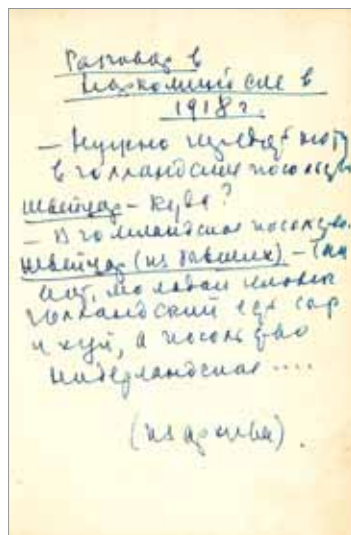 Разговор в
Наркоминделе в
1918 г.
— Нужно передать ноту
в голландское посольство
швейцар — куда?
— В голландское посольство.
швейцар (из бывших) —
молодой человек
голландский есть сыр
и хуй, а посольство
нидерландское ....
(из архива).